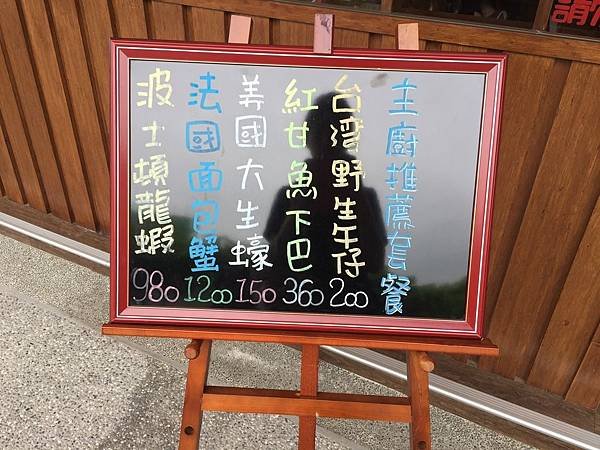 主廚推薦套餐
台湾野生午仔200
紅甘魚下巴360
美國大生蠔150
法國面包蟹1200
波士頓龍蝦980
請